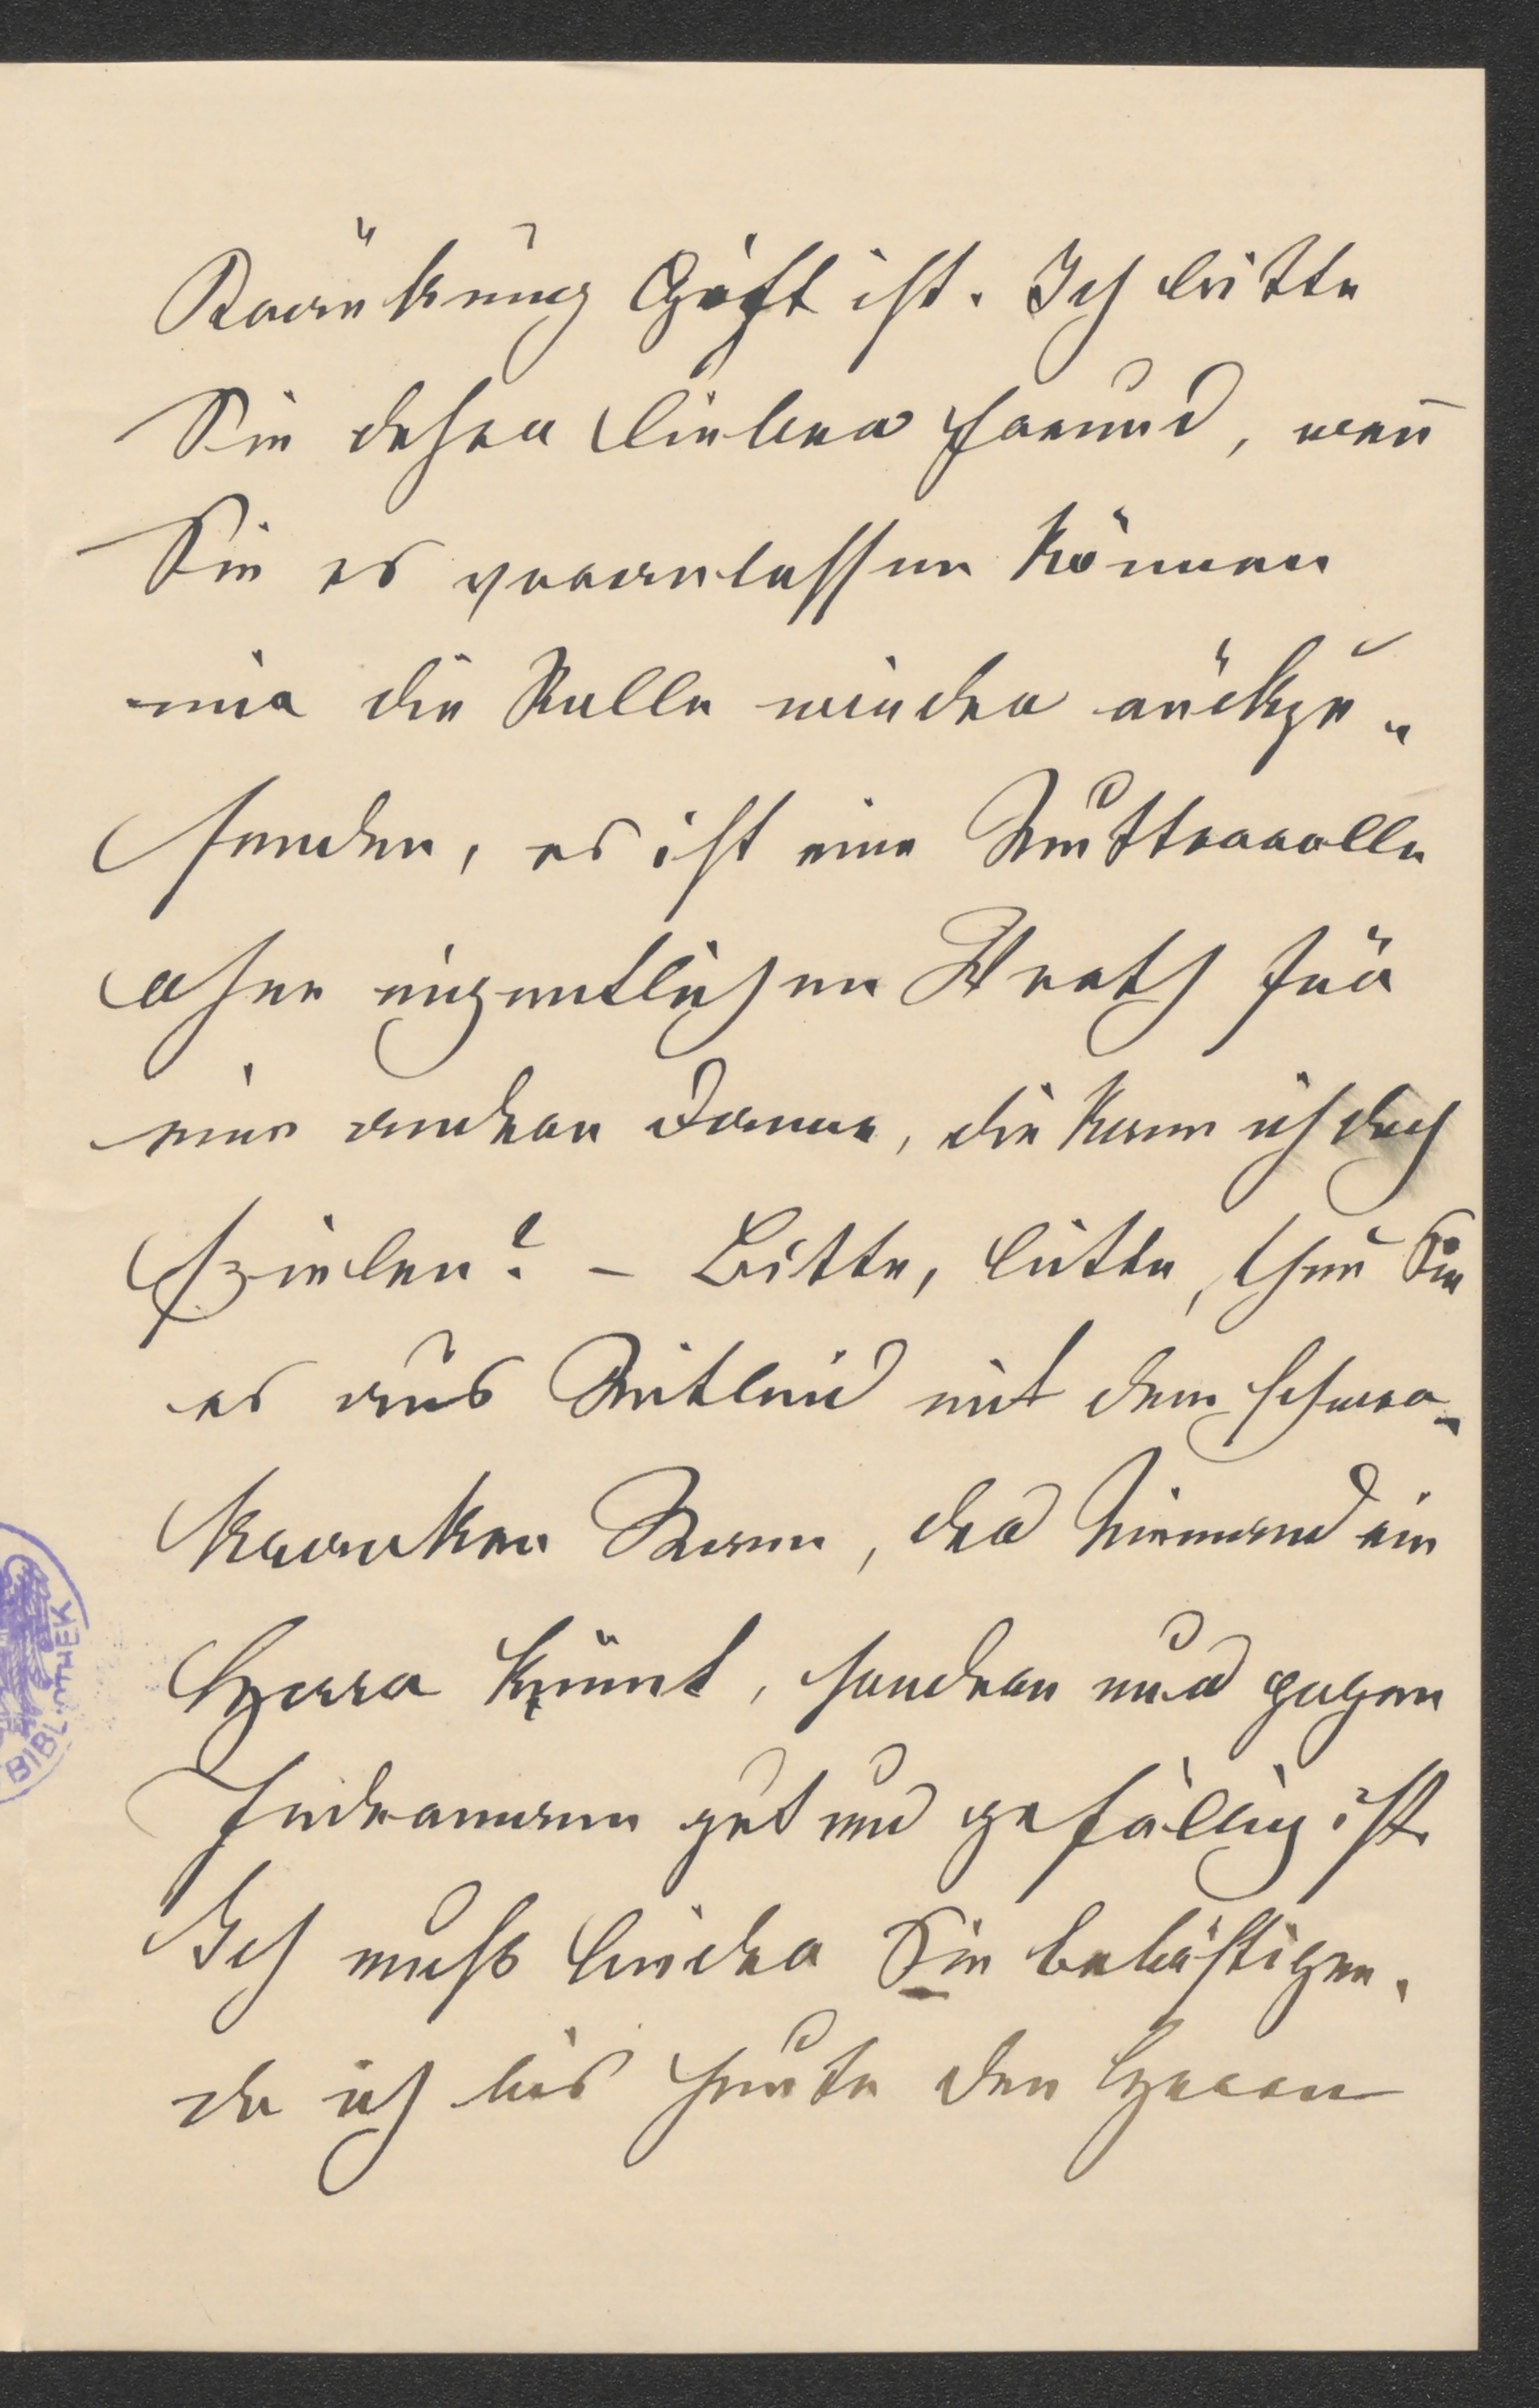 Kränkung Gift ist. Ich bitte
Sie daher lieber Freund, wen̄
Sie es veranlassen können
mir die Rolle wieder rückzu-
senden, es ist eine Mutterrolle
ohne eigentlichen Werth für
eine andere Dame, die kann ich doch
spielen? – Bitte, bitte, thun Sie
es aus Mitleid mit dem schwer-
kranken Mann, der Niemand ein
Haar krümt, sondern nur gegen
Jedermann gut und gefällig ist.
Ich muß leider Sie belästigen,
da ich bis heute den Herren
BIBLIOTHEK